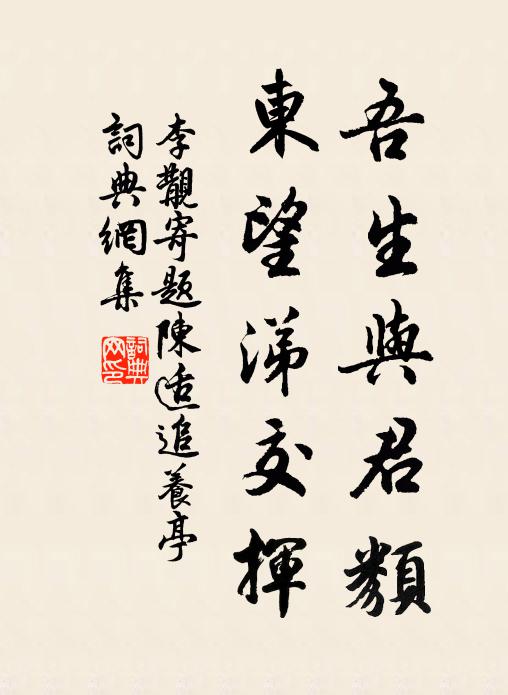 吾生與君類
東望涕交揮
李覯寄題陳适追養亭
詞典網集
詞典
网印